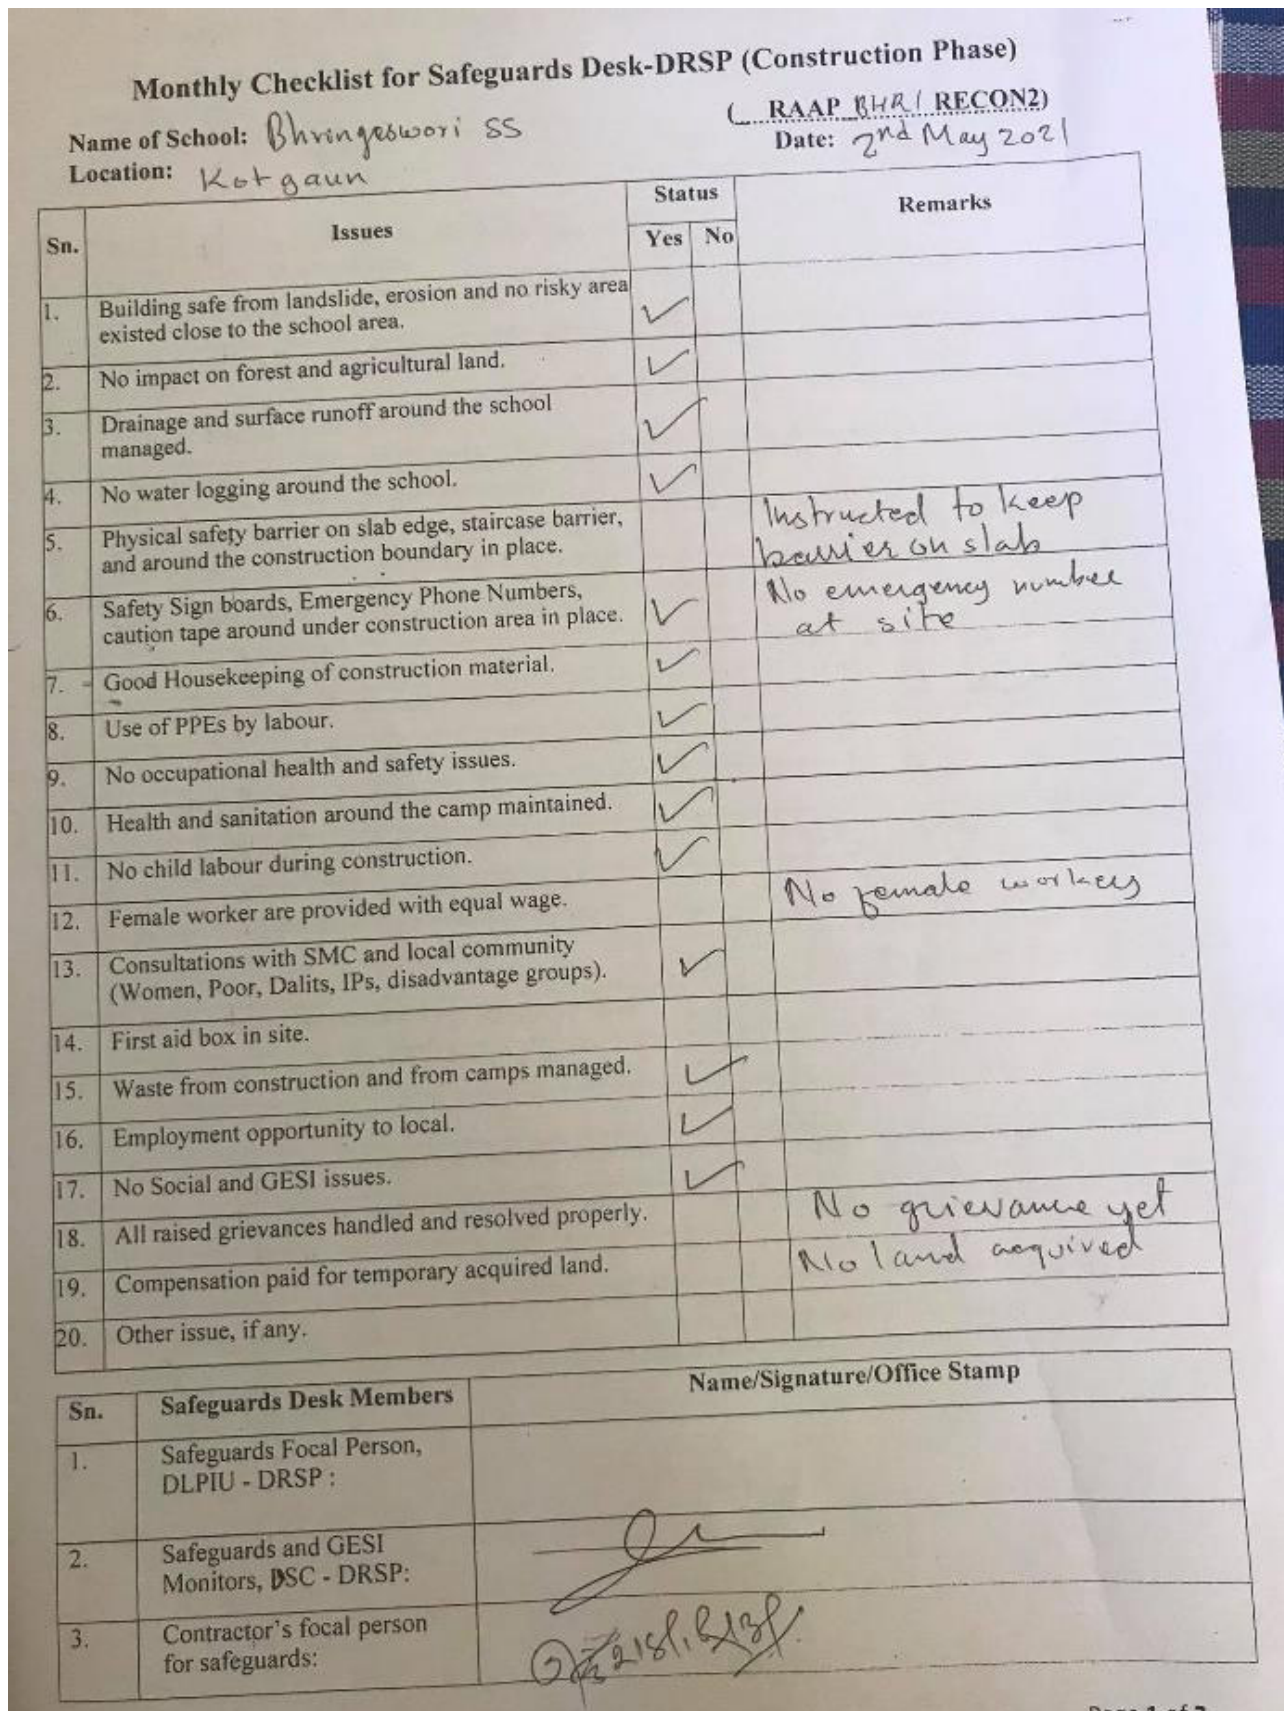 Monthly Checklist for Safeguards Desk-DRSP (Construction Phase)
(...RAAP BHRI RECON2)
Name of School: Bhringeswori SS
Date: 2nd May 2021
Location: Kotgaun
Sn. Issues Status Remarks
Yes No
1. Building safe from landslide, erosion and no risky area
existed close to the school area. ✓
2. No impact on forest and agricultural land. ✓
3. Drainage and surface runoff around the school
managed. ✓
4. No water logging around the school. ✓
5. Physical safety barrier on slab edge, staircase barrier,
and around the construction boundary in place.
Instructed to keep
barrier on slab
6. Safety Sign boards, Emergency Phone Numbers,
caution tape around under construction area in place. ✓
No emergency number
at site
7. Good Housekeeping of construction material. ✓
8. Use of PPEs by labour. ✓
9. No occupational health and safety issues. ✓
10. Health and sanitation around the camp maintained. ✓
11. No child labour during construction. ✓
12. Female worker are provided with equal wage. No female workers
13. Consultations with SMC and local community
(Women, Poor, Dalits, IPs, disadvantage groups). ✓
14. First aid box in site.
15. Waste from construction and from camps managed. ✓
16. Employment opportunity to local. ✓
17. No Social and GESI issues. ✓
18. All raised grievances handled and resolved properly. No grievance yet
19. Compensation paid for temporary acquired land. No land acquired
20. Other issue, if any.
Sn. Safeguards Desk Members Name/Signature/Office Stamp
1. Safeguards Focal Person,
DLPIU - DRSP :
2. Safeguards and GESI
Monitors, DSC - DRSP:
3. Contractor's focal person
for safeguards: